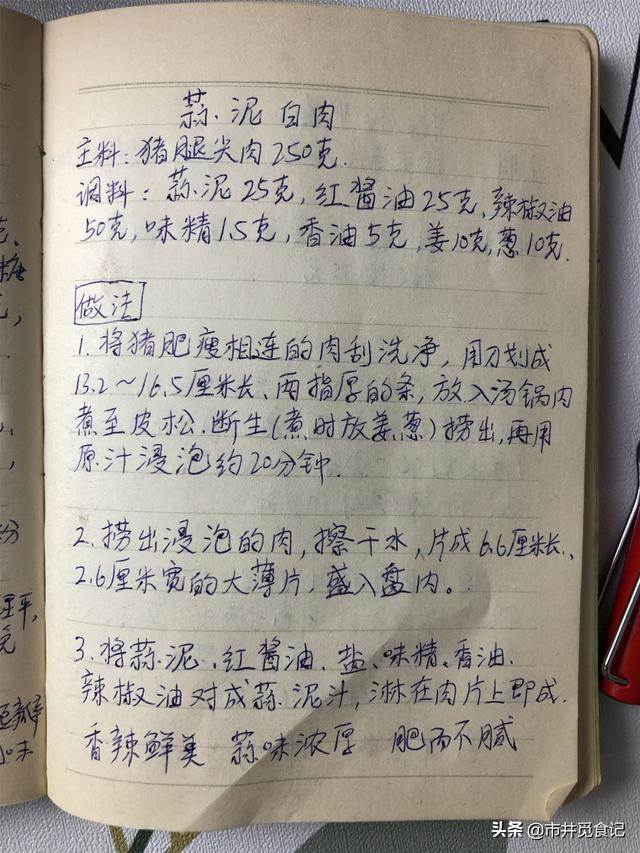 蒜泥白肉
主料:猪腿尖肉250克.
调料:蒜泥25克,红酱油25克,辣椒油
50克,味精1.5克,香油5克,姜10克,葱10克.
做法
1.将猪肥瘦相连的肉刮洗净,用刀划成
13.2~16.5厘米长、两指厚的条,放入汤锅内
煮至皮松.断生(煮时放姜葱)捞出,再用
原汁浸泡约20分钟.
2.捞出浸泡的肉,擦干水,片成6.6厘米长、
2.6厘米宽的大薄片,盛入盘内。
3.将蒜泥、红酱油、盐、味精、香油、
辣椒油对成蒜泥汁,淋在肉片上即成.
香辣鲜美 蒜味浓厚 肥而不腻
克、
糖
分
理平,
免
味
头条 @市井觅食记